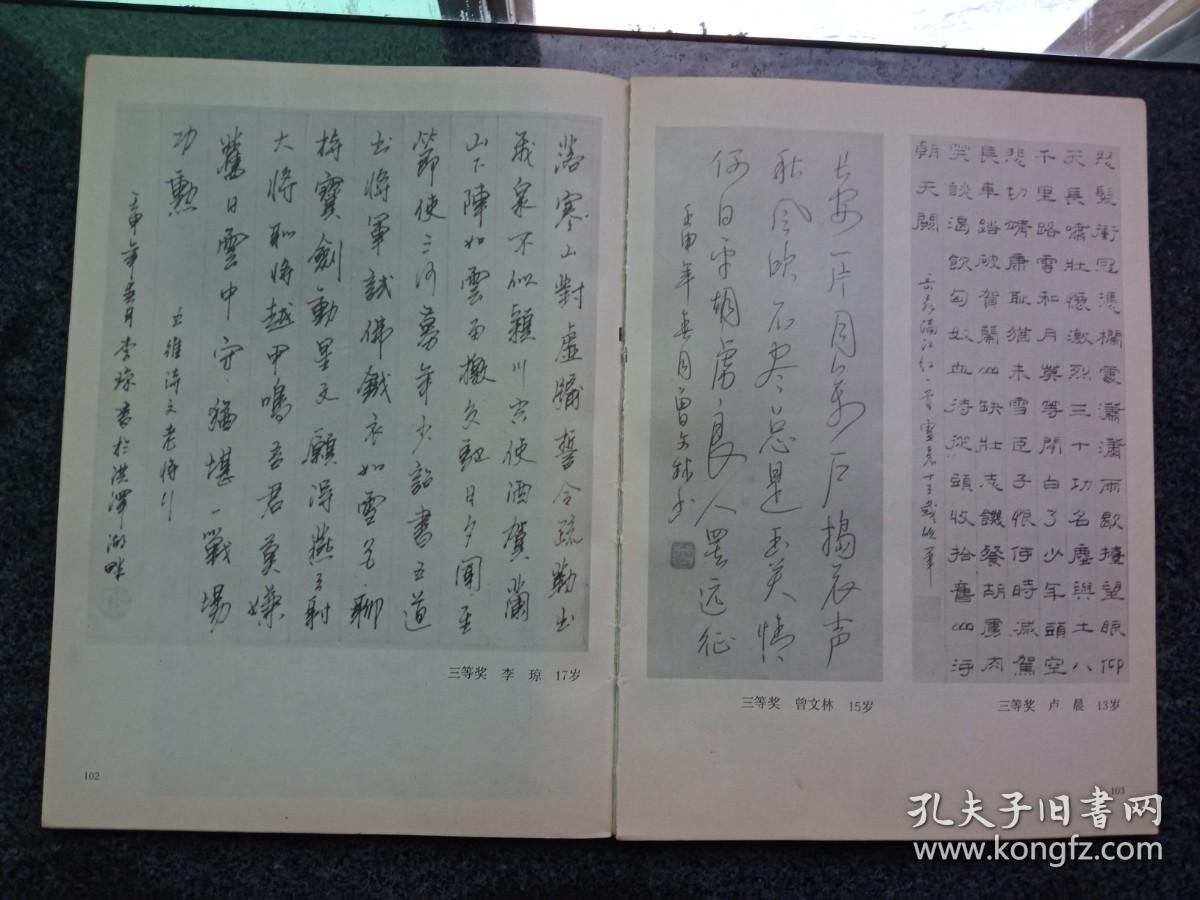 落寒山對虛牖誓令疏勒出
飛泉不似穎川空使酒賀蘭
山下陣如雲羽檄交馳日夕聞
節使三河募年少詔書五道
出將軍試拂鐵衣如雪色聊
持寶劍動星文願得燕弓射
大將恥將越甲鳴吾君莫嫌
舊日雲中守猶堪一戰場
功勳
王維詩文老將行
壬申年春月李琼書於洪澤湖畔
三等奖 李 琼 17岁
102
怒髮衝冠憑欄處瀟瀟雨歇擡望眼仰
天長嘯壯懷激烈三十功名塵與土八
千里路雲和月莫等閑白了少年頭空
悲切靖康恥猶未雪臣子恨何時滅駕
長車踏破賀蘭山缺壯志饑餐胡虜肉
笑談渴飲匈奴血待從頭收拾舊山河
朝天闕
岳飛滿江紅一首 盧晨十三歲
三等奖 卢 晨 13岁
长安一片月万户搗衣声
秋风吹不尽总是玉关情
何日平胡虏良人罢远征
壬申年春月曾文林书
三等奖 曾文林 15岁
103
孔夫子旧书网
www.kongfz.com